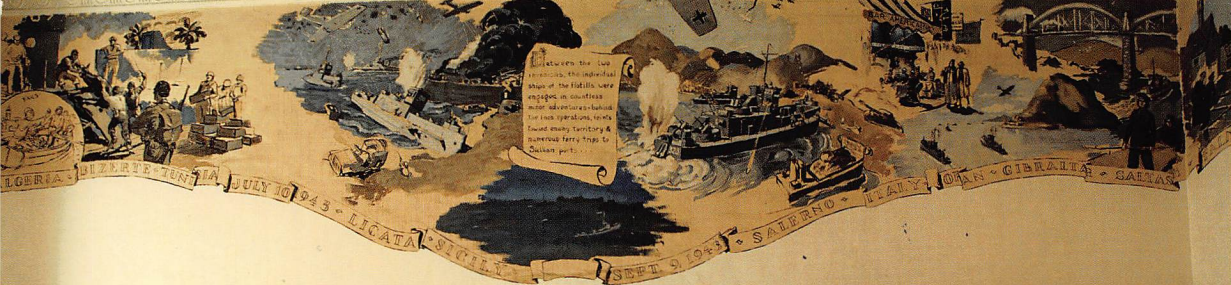 BAR AMERICAIN
Between the two
invasions, the individual
ships of the flotilla were
engaged in countless
minor adventures-behind
the lines operations, feints
toward enemy territory &
numerous ferry trips to
Sicilian ports...
LGERIA · BIZERTE-TUNISIA JULY 10 1943 · LICATA · SICILY · SEPT. 9, 1943 · SALERNO · ITALY · ORAN · GIBRALTAR · SALTAS